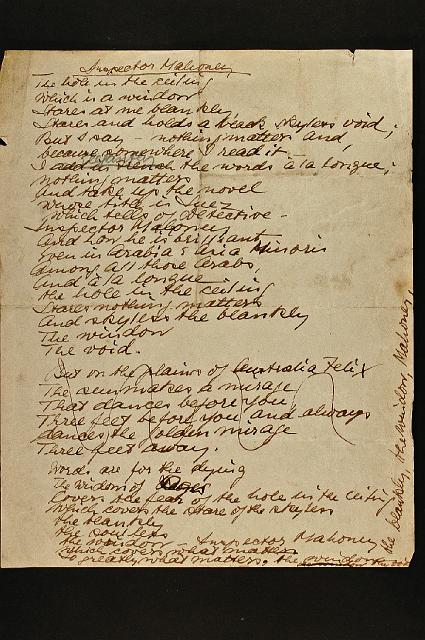 Inspector Mahoney
The hole in the ceiling
Which is a window
Stares at me blankly
Stares and holds a black skyless void;
But I say - nothing matters and,
because somewhere I read it -
I add in French the words à la longue;
nothing matters
And take up the novel
whose title is Suez
Which tells of Detective -
Inspector Mahoney
And how he is brilliant
Even in Arabia & Asia Minoris
among all those Arabs
And à la longue
the hole in the ceiling
Stares nothing matters
And skyless the blankly
The window
The void.
But on the plains of Australia Felix
The sun makes a mirage
That dances before you
Three feet before you and always
dances the golden mirage
Three feet away.
Words are for the dying
The wisdom of
Covers the fear of the hole in the ceiling
Which covers the stare of the skyless
the blankly
the
the window - Inspector Mahoney
which covers what matters
So greatly what matters. the window the void
the blankly, the window, Mahoney,